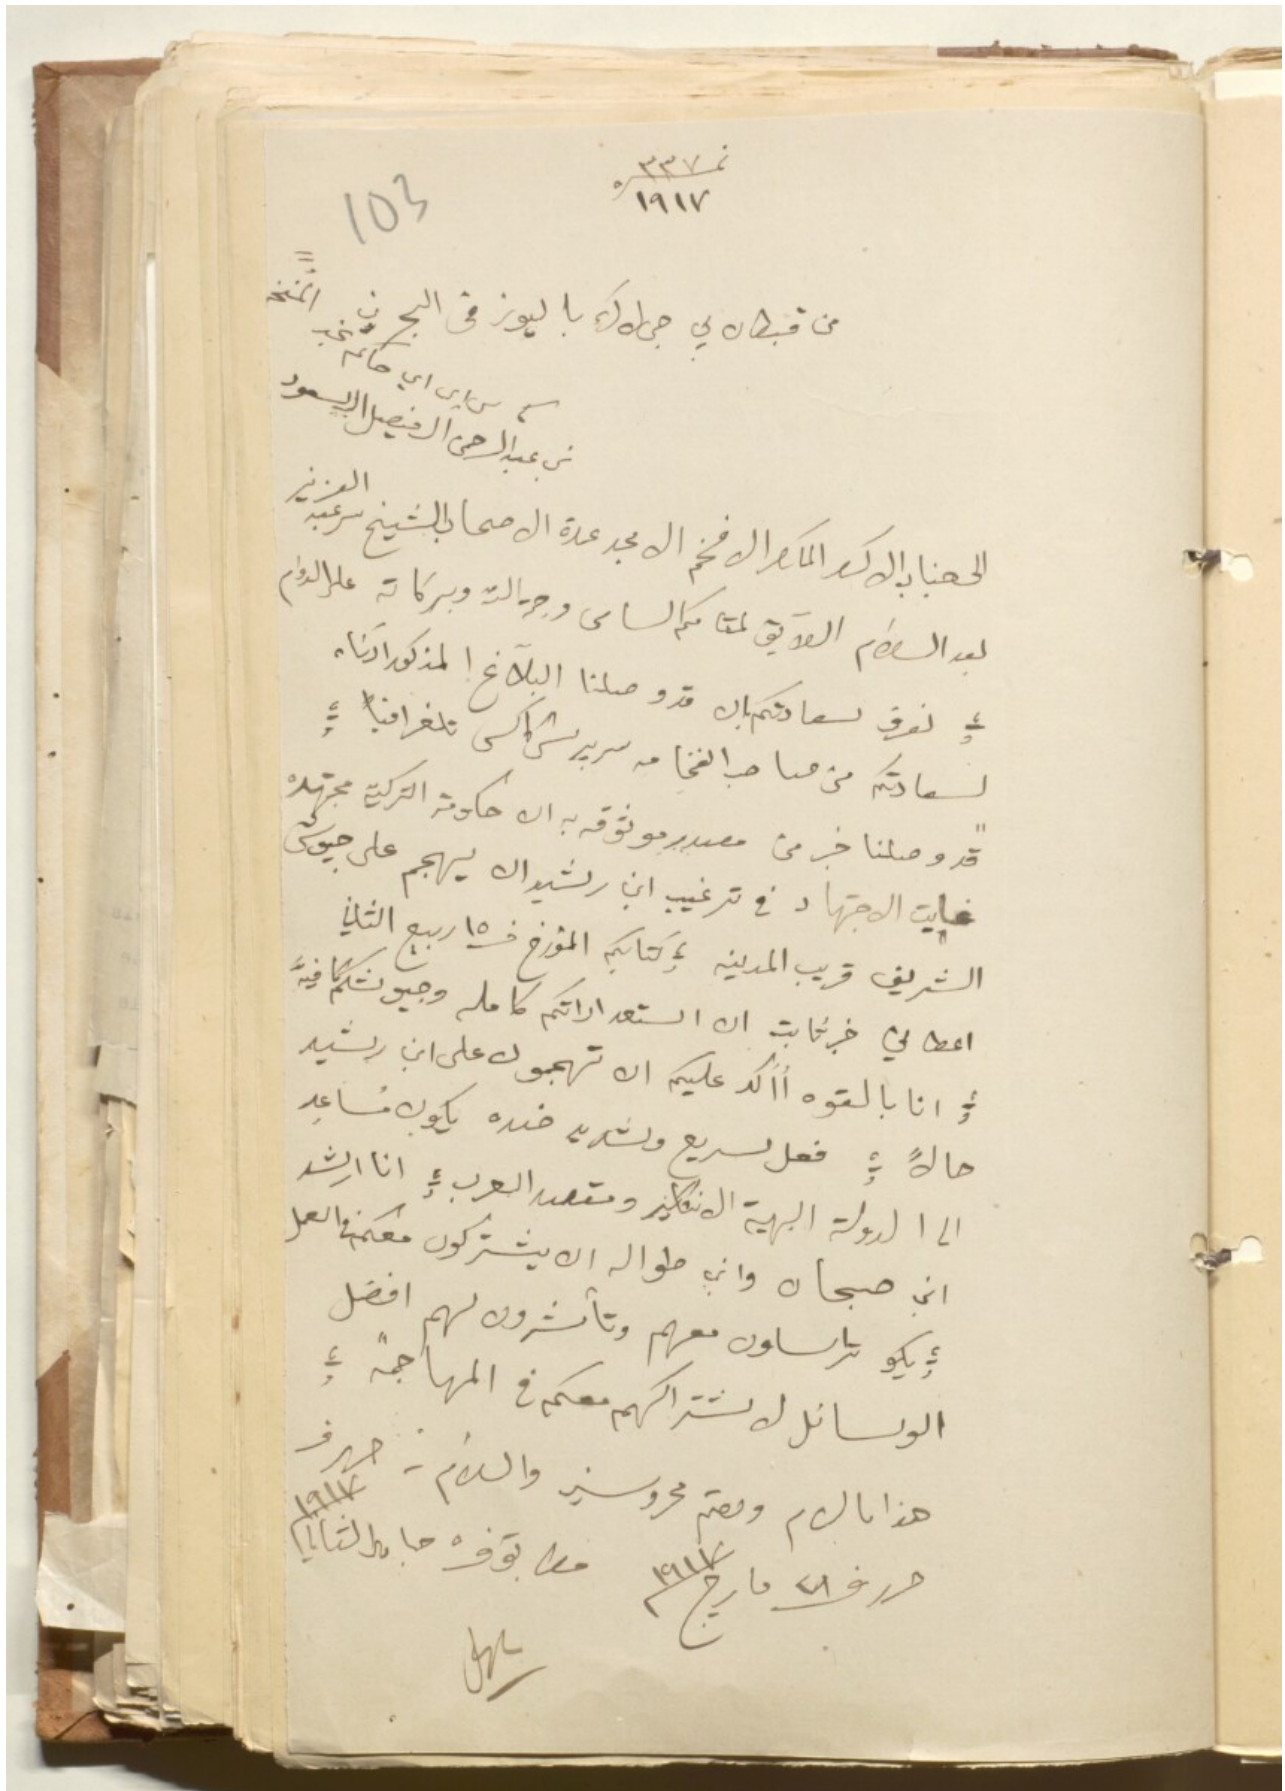 نمره ٣٣٧
١٩١٧
103
من قبطان بي جي لاك باليوز في البحرين المفخه
الى جناب الاكرم المكرم الافخم الامجد عمدة الاصحاب الشيخ سر عبد العزيز
بن عبد الرحمن آل فيصل آل سعود
كے سي اي اي حاكم نجد
بعد السلام اللآيق لمقامكم السامى و وبركاته على الدوام
نعرف سعادتكم بان قد وصلنا البلآغ المذكور ادناه
لسعادتكم من صاحب الفخامه سر پرسى كاكس تلغرافياً
"قد وصلنا خبر من مصدر موثوقه به ان حكومة التركية مجتهده
غايت الاجتهاد في ترغيب ابن رشيد ان يهجم على جيوش
الشريف قريب المدينه كتابكم المؤرخ في ١٥ ربيع الثاني
اعطاني خبر ثابت ان استعداداتكم كامله وجيوشكم كافيةً
انا بالقوه أأكد عليكم ان تهجمون على ابن رشيد
حالاً فعل سريع وشديد ضده يكون مُساعد
الى الدولة البهية الانكليز ومقصد العرب انا ارشد
ابن صبحان وابن طواله ان يشتركون معكم في العمل
يكو تراسلون معهم وتأشرون لهم افضل
الوسائل لاشتراكهم معكم في المهاجمة"
هذا ما لزم ودمتم محروسين والسلام حرر في
حرر في ٢٨ مارچ ١٩١٧م مطابق جماد الثاني